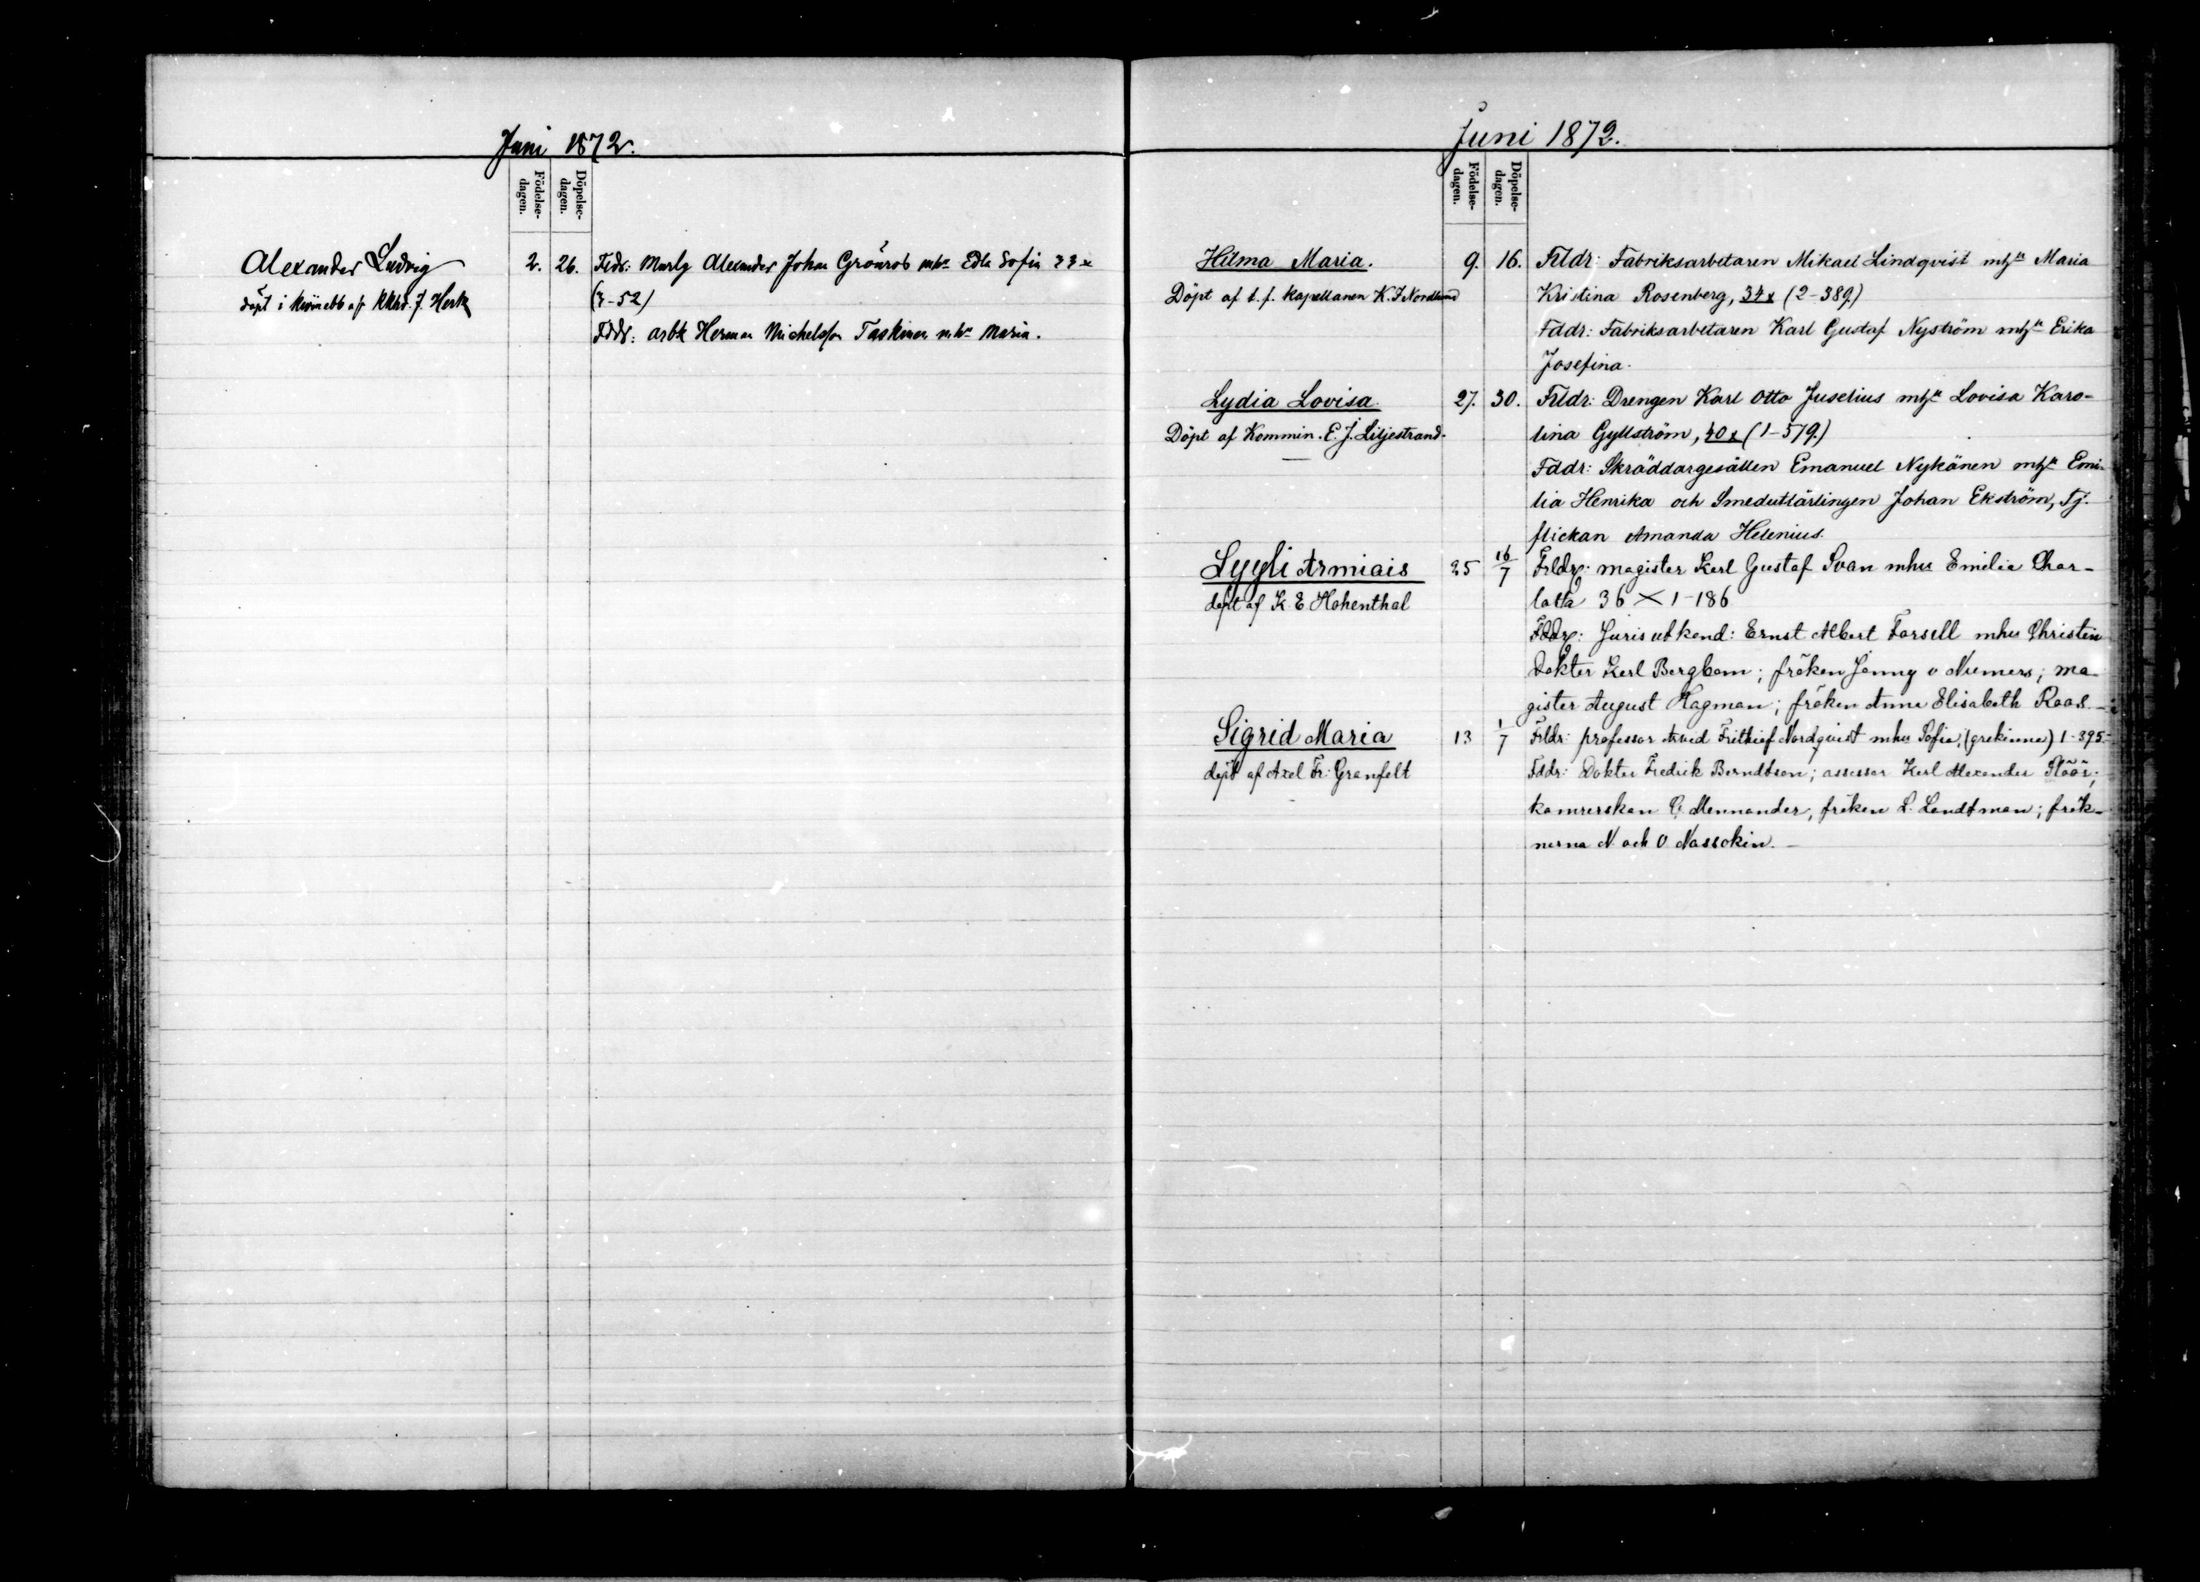 Juni 1872.
Födelse-
dagen.
Döpelse-
dagen.
Alexander Ludvig
2. 26.
döpt i af J. Herk
Frldr: Alexander Johan Grönros mhu Edla Sofia 33 x
(3-52)
Fddr: arbk Herman Michelsson Taskinen mhu Maria.
Juni 1872.
Födelse-
dagen.
Döpelse-
dagen.
Hilma Maria. 9. 16. Frldr: Fabriksarbetaren Mikael Lindqvist mhu Maria
Döpt af t. f. Kapellanen K. J. Nordlund Kristina Rosenberg, 34 x (2-389)
Fddr: Fabriksarbetaren Karl Gustaf Nyström mhu Erika
Josefina.
Lydia Lovisa. 27. 30. Frldr: Drengen Karl Otto Juselius mhu Lovisa Karo-
Döpt af Kommin. E. J. Liljestrand. lina Gyllström, 40 x (1-579.)
Fddr: Skräddaregesällen Emanuel Nykänen mhu Emi-
lia Henrika och Smedutlärlingen Johan Ekström, Tj.
flickan Amanda Helenius.
Lyyli Armiais 25 16/7 Frldr: magister Karl Gustaf Svan mhu Emilia Char-
döpt af K. E Hohenthal lotta 36 x 1-186
Fddr: Juris utkand: Ernst Albert Forsell mhu Christin
Doktor Karl Bergbom; fröken Jenny v Numers; ma-
gister August Hagman; fröken Anna Elisabeth Roos. -
Sigrid Maria 13 1/7 Frldr: professor Arvid Frithiof Nordqvist mhu Sofia, (grekinna) 1-395-
döpt af Axel Fr: Granfelt Fddr: Doktor Fredrik Berndtson; assessor Karl Alexander Slöör;
kamrerskan C. Mennander, fröken L. Landtman; frök-
narna N. och O Nassokin. -